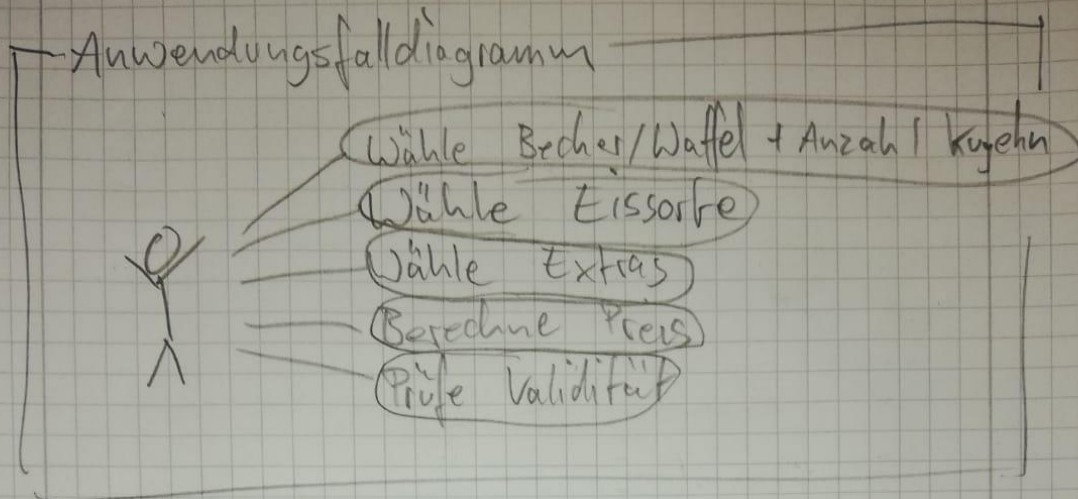 Anwendungsfalldiagramm
Wähle Becher/Waffel + Anzahl Kugeln
Wähle Eissorte
Wähle Extras
Berechne Preis
Prüfe Validität